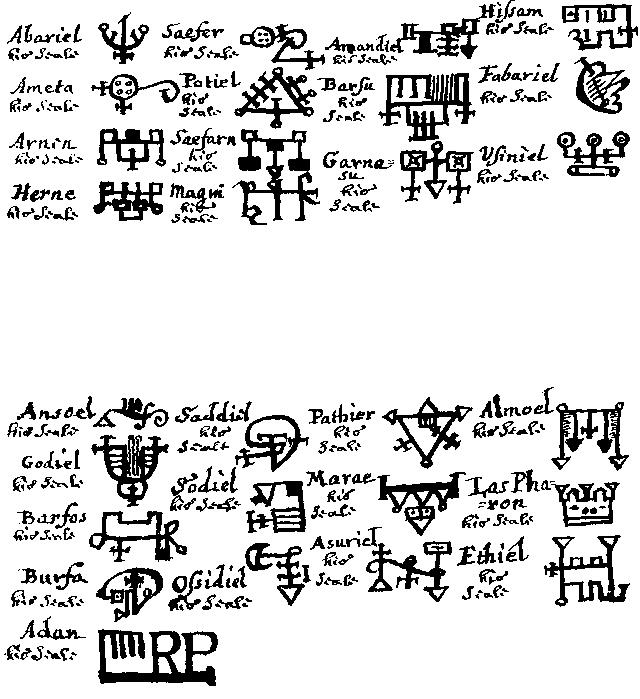 Abariel
his Seale
Ameta
his Seale
Arnen
his Seale
Herne
his Seale
Saefer
his Seale
Potiel
his
Seale
Saefarn
his
Seale
Maqui
his
Seale
Amandiel
his Seale
Barsu
his
Seale
Garna=
su
his
Seale
Hissam
his Seale
Fabariel
his Seale
Usiniel
his Seale
Ansoel
his Seale
Godiel
his Seale
Barfos
his Seale
Burfa
his Seale
Adan
his Seale
Saddiel
his
Seale
Sodiel
his Seale
Ossidiel
his Seale
Pathier
his
Seale
Marae
his
Seale
Asuriel
his
Seale
Almoel
his Seale
Las Pha=
=ron
his Seale
Ethiel
his
Seale